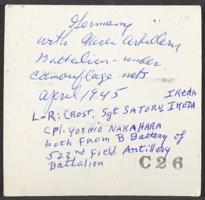 Germany
with Nisei Artillery
Battalion - under
camouflage nets
April 1945
Ikeda
L-R: CROST, Sgt SATORU IKEDA
Cpl. YOSHIO NAKAHARA
both From B Battery of
522nd Field Artillery
Battalion
C26